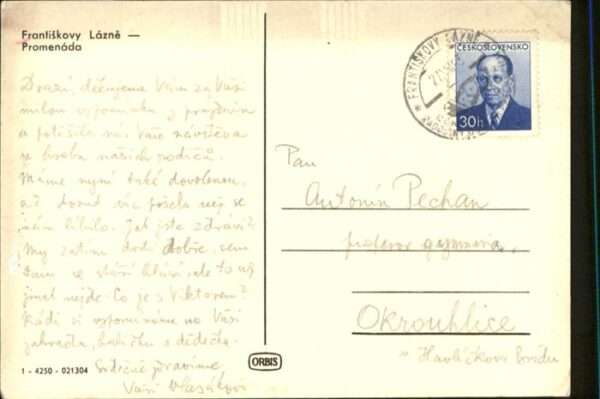 Františkovy Lázně —
Promenáda
FRANTIŠKOVY LÁZNĚ
ČESKOSLOVENSKO
30h
Drazí, děkujeme Vám za Vaši
milou vzpomínku z prázdnin
a potěšila nás Vaše návštěva
u hrobu našich rodičů.
Máme nyní také dovolenou,
líbilo. Jak jste zdrávi?
My zatím dobře, sem
tam se stáří hlásí ale to už
jinak nejde. Co je s Viktorem?
Rádi si vzpomínáme na Vaši
zahradu, babičku a dědečka.
Srdečně zdravíme
Vaši
Pan
Antonín Pechan
profesor gymnasia,
Okrouhlice
u Havlíčkova Brodu
ORBIS
1 - 4250 - 021304